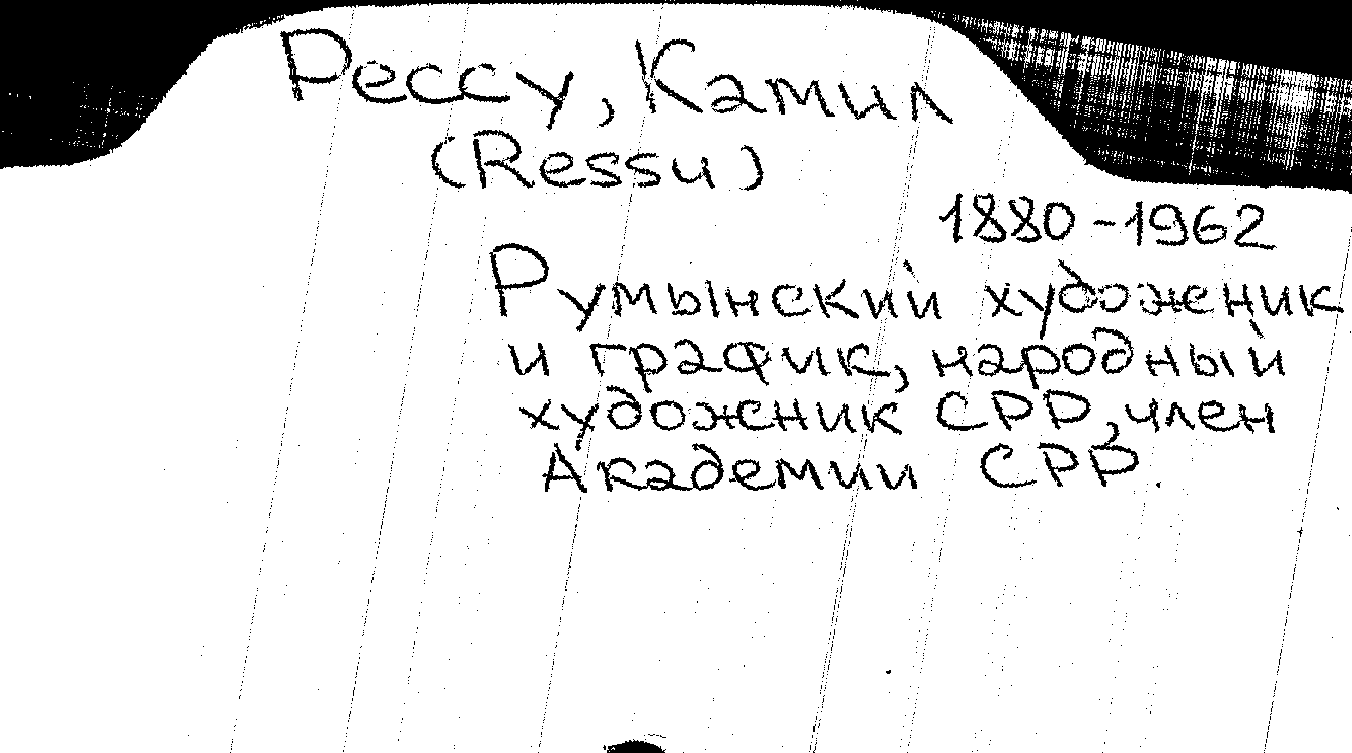 Рессу, Камил
(Ressu)
1880-1962
Румынский художник
и график, народный
художник СРР, член
Академии СРР.